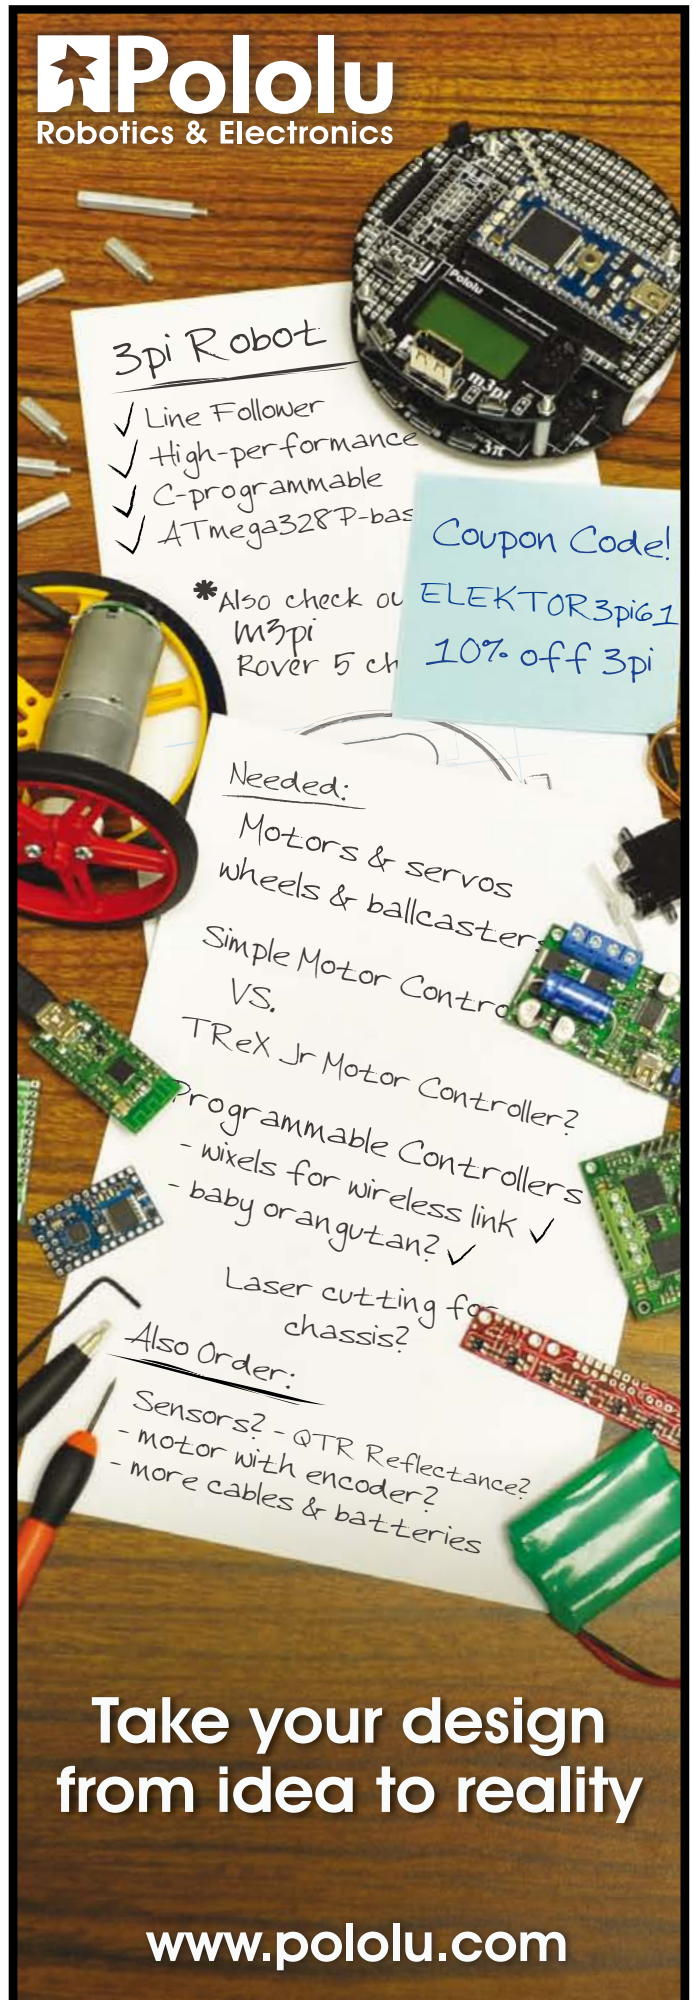 Pololu
Robotics & Electronics
Pololu
m3pi
3π
3pi Robot
Line Follower
High-performance
C-programmable
ATmega328P-bas
Coupon Code!
ELEKTOR3pi61
10% off 3pi
*Also check ou
m3pi
Rover 5 ch
Needed:
Motors & servos
wheels & ballcasters
Simple Motor Contro
VS.
TReX Jr Motor Controller?
Programmable Controllers
- wixels for wireless link ✓
- baby orangutan? ✓
Laser cutting for
chassis?
Also Order:
Sensors? - QTR Reflectance?
- motor with encoder?
- more cables & batteries
Take your design
from idea to reality
www.pololu.com